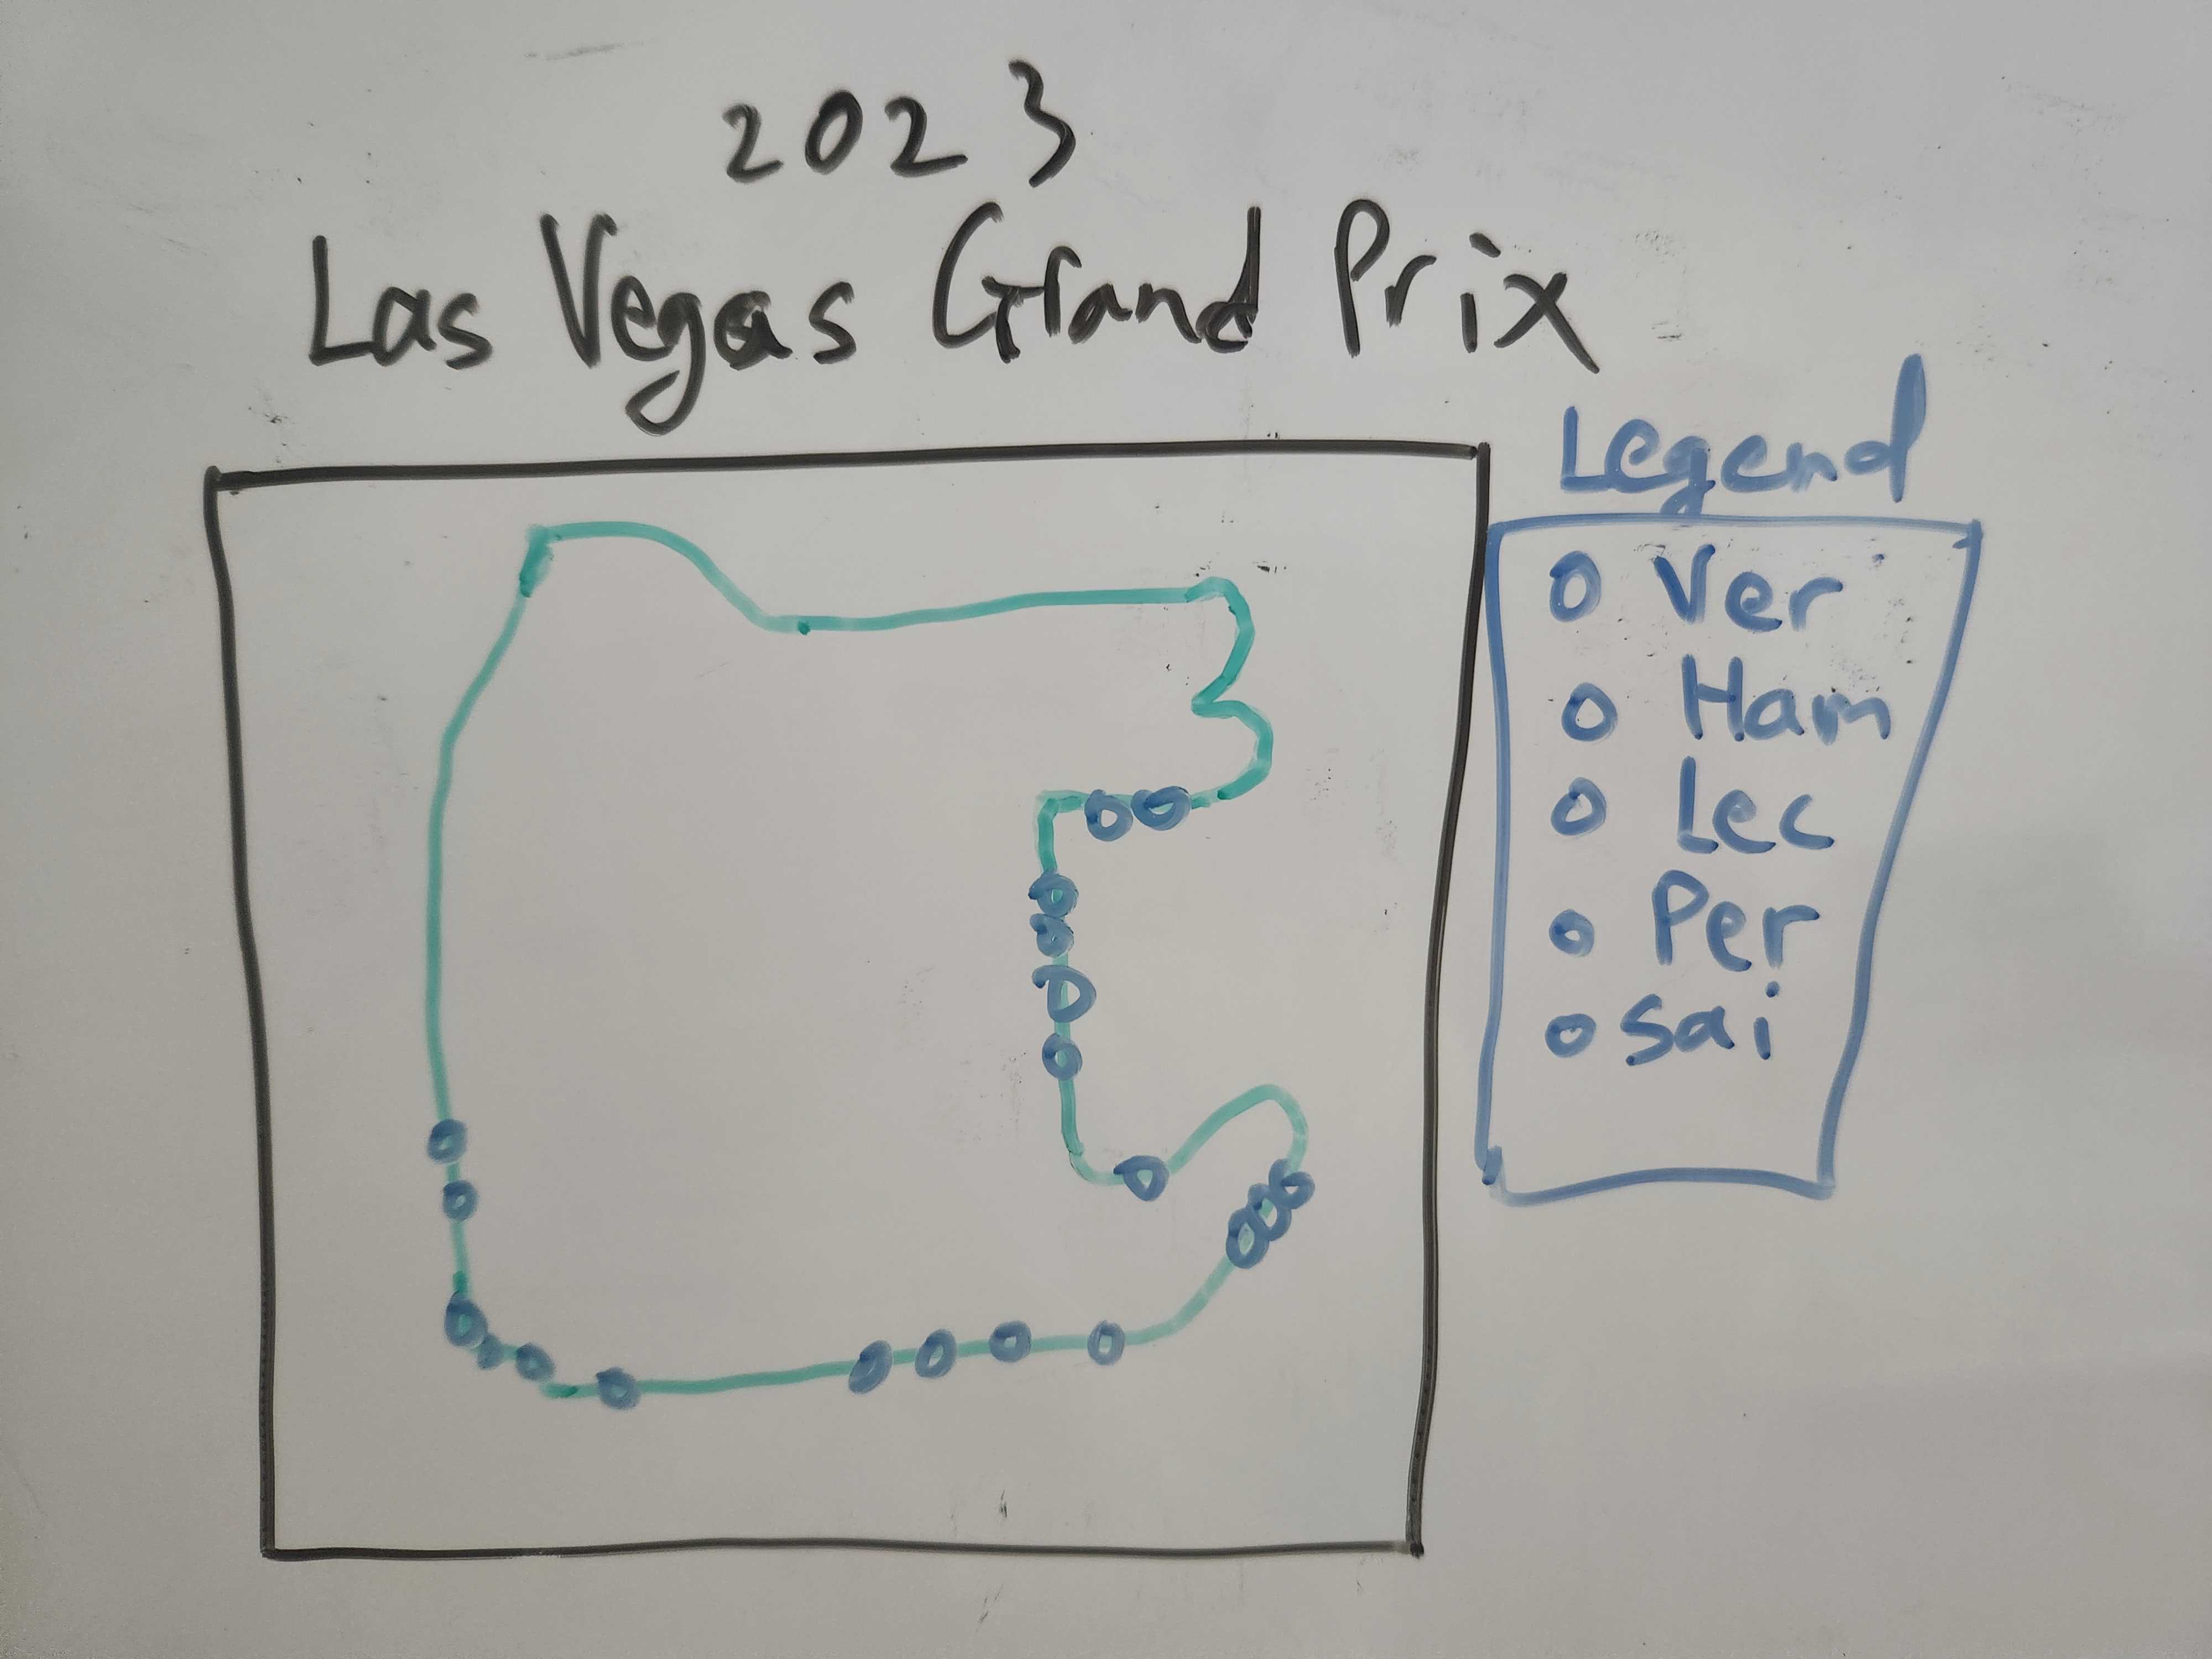 2023
Las Vegas Grand Prix
Legend
Ver
Ham
Lec
Per
Sai